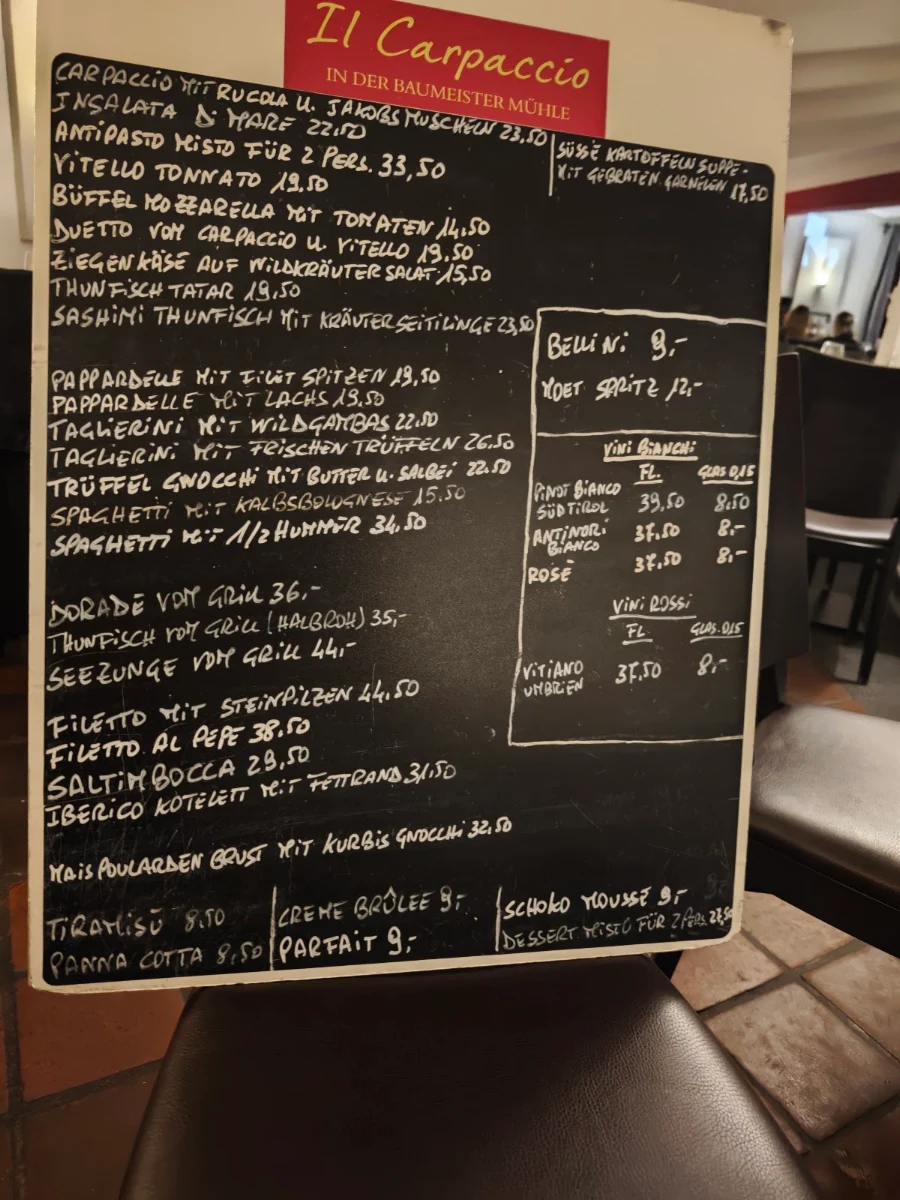 Il Carpaccio
IN DER BAUMEISTER MÜHLE
CARPACCIO MIT RUCOLA U. JAKOBSMUSCHELN 23,50
INSALATA DI MARE 22.50
ANTIPASTO MISTO FÜR 2 PERS. 33,50
VITELLO TONNATO 19.50
BÜFFEL MOZZARELLA MIT TOMATEN 14,50
DUETTO VOM CARPACCIO U. VITELLO 19.50
ZIEGENKÄSE AUF WILDKRÄUTER SALAT 15,50
THUNFISCH TATAR 19,50
SASHIMI THUNFISCH MIT KRÄUTERSEITLINGE 23,50
SÜSSE KARTOFFELN SUPPE-
MIT GEBRATEN GARNELEN 17,50
PAPPARDELLE MIT FILET SPITZEN 19,50
PAPPARDELLE MIT LACHS 19.50
TAGLIERINI MIT WILDGAMBAS 22.50
TAGLIERINI MIT FRISCHEN TRÜFFELN 26.50
TRÜFFEL GNOCCHI MIT BUTTER U. SALBEI 22.50
SPAGHETTI MIT KALBSBOLOGNESE 15,50
SPAGHETTI MIT 1/2 HUMMER 34,50
DORADE VOM GRILL 36,-
THUNFISCH VOM GRILL (HALBROH) 35,-
SEEZUNGE VOM GRILL 44,-
FILETTO MIT STEINPILZEN 44,50
FILETTO AL PEPE 38,50
SALTIMBOCCA 29,50
IBERICO KOTELETT MIT FETTRAND 31,50
MAIS POULARDEN BRUST MIT KURBIS GNOCCHI 32,50
BELLINI 9,-
MOET SPRITZ 12,-
VINI BIANCHI
FL. GLAS 0,15
PINOT BIANCO
SÜDTIROL 39,50 8,50
ANTINORI
BIANCO 37.50 8,-
ROSÉ 37.50 8,-
VINI ROSSI
FL GLAS. 0,15
VITIANO
UMBRIEN 37.50 8,-
TIRAMISÙ 8,50
PANNA COTTA 8,50
CREME BRÛLEE 9,-
PARFAIT 9,-
SCHOKO MOUSSE 9,-
DESSERT MISTO FÜR 2 PERS